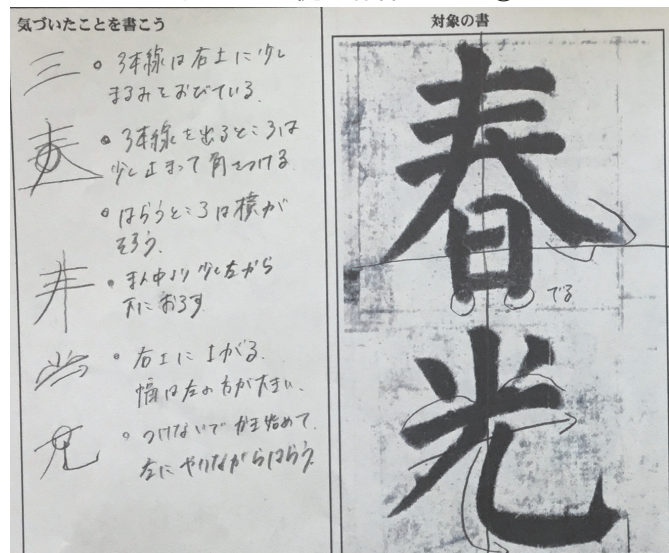 気づいたことを書こう
三
• 3本線は右上に少し
まるみをおびている。
• 3本線を出るところは
少し止まって角をつける。
• はらうところは横が
そろう。
• まん中より少し左から
下におろす
• 右上に上がる。
幅は左の方が大きい。
• つけないでかき始めて、
左にやりながらはらう。
対象の書
春
でる
光